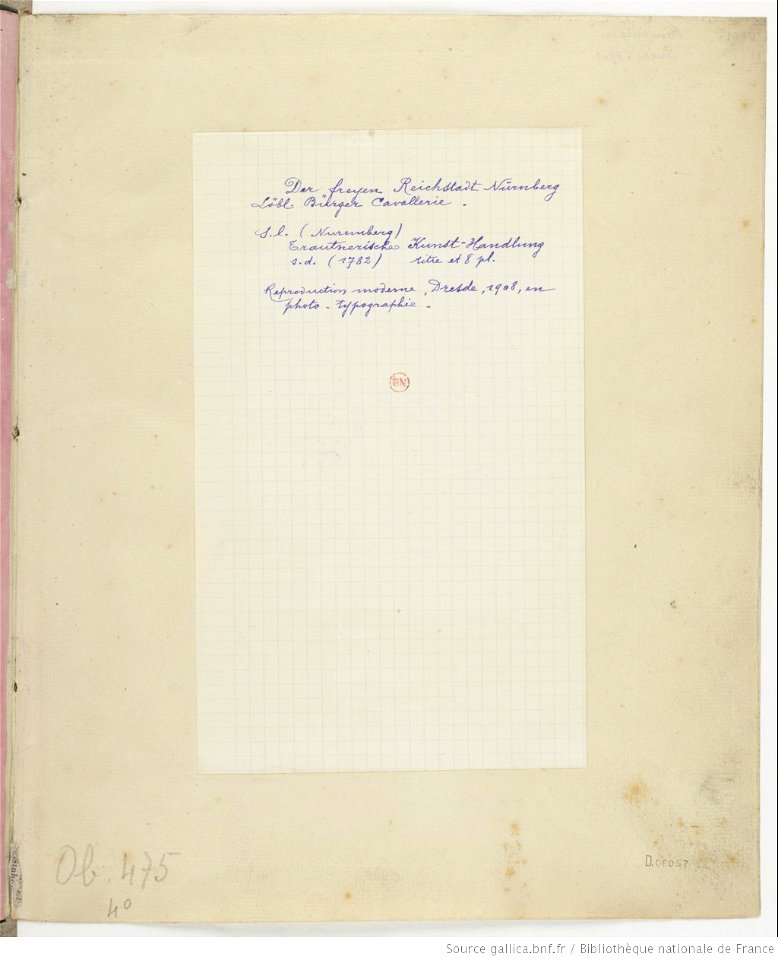 Der freyen Reichstadt Nürnberg
Löbl. Bürger Cavallerie.
S.l. (Nuremberg)
Trautnerische Kunst-Handlung
s.d. (1782) titre et 8 pl.
Reproduction moderne, Dresde, 1908, en
photo-typographie.
BN
Ob. 475
4°
D.06057
Source gallica.bnf.fr / Bibliothèque nationale de France